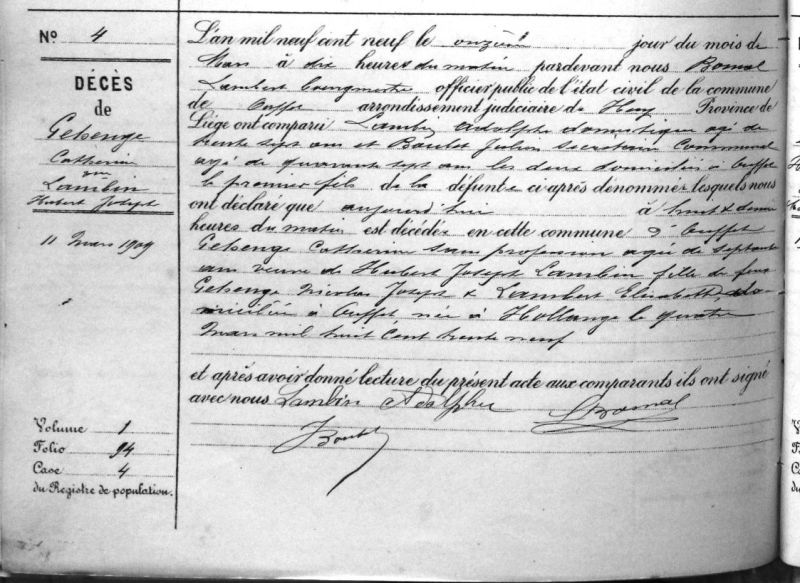 Nº 4
DÉCÈS
de
Gehenge
Catherine
vve
Lambin
Hubert Joseph
11 Mars 1909
Volume 1
Folio 94
Case 4
du Registre de population.
L'an mil neuf cent neuf le onzième jour du mois de
Mars à dix heures du matin pardevant nous Bomal
Lambert bourgmestre officier public de l'état civil de la commune
de Ouffet arrondissement judiciaire de Huy Province de
Liège ont comparu Lambin Adolphe domestique agé de
trente sept ans et Boulet Julien secrétaire communal
agé de quarante sept ans les deux domiciliés à Ouffet
le premier fils de la défunte ci-après dénommée lesquels nous
ont déclaré que aujourd'hui à huit & demie
heures du matin est décédée en cette commune d'Ouffet
Gehenge Catherine sans profession agée de septante
ans veuve de Hubert Joseph Lambin fille de feus
Gehenge Nicolas Joseph & Lambert Elisabeth, do-
miciliée à Ouffet née à Hollange le quatre
Mars mil huit cent trente neuf
et après avoir donné lecture du présent acte aux comparants ils ont signé
avec nous Lambin Adolphe LBomal
JBoulet